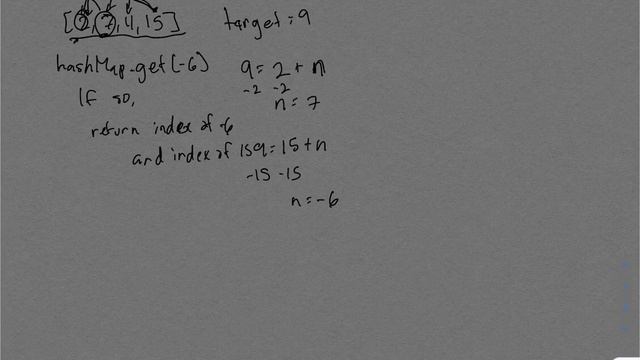 [2,7,4,15] target = 9
hashMap.get(-6) 9 = 2 + n
-2 -2
If so, n = 7
return index of -6
and index of 15 9 = 15 + n
-15 -15
n = -6